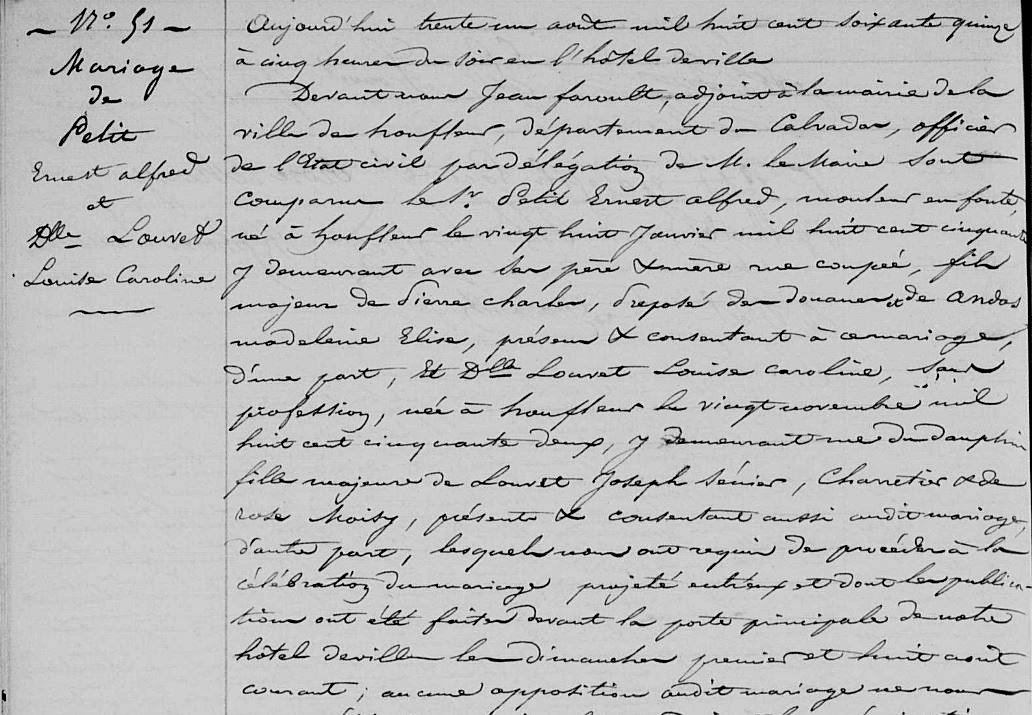 N.o 51
Mariage
de
Petit
Ernest alfred
et
Dlle Louvet
Louise Caroline
Aujourd'hui trente un août mil huit cent soixante quinze
à cinq heures du soir en l'hôtel de ville
Devant nous Jean faroult, adjoint à la mairie de la
ville de honfleur, département du Calvados, officier
de l'Etat civil par délégation de M. le Maire sont
comparus le Sr. Petit Ernest alfred, mouleur en fonte,
né à honfleur le vingt huit Janvier mil huit cent cinquante
y demeurant avec ses père & mère rue coupée, fils
majeur de Pierre charles, Préposé des douanes et de
madeleine Elise, présens & consentant à ce mariage,
d'une part, Et Dlle Louvet Louise Caroline, sans
profession, née à honfleur le vingt novembre mil
huit cent cinquante deux, y demeurant rue du dauphin
fille majeure de Louvet Joseph Sénier, Charretier & de
rose Moisy, présents & consentant aussi audit mariage,
d'autre part, lesquels nous ont requis de procéder à la
célébration du mariage projeté entr'eux et dont les publica-
tions ont été faites devant la porte principale de notre
hôtel de ville les dimanches premier et huit août
courant; aucune opposition audit mariage ne nous